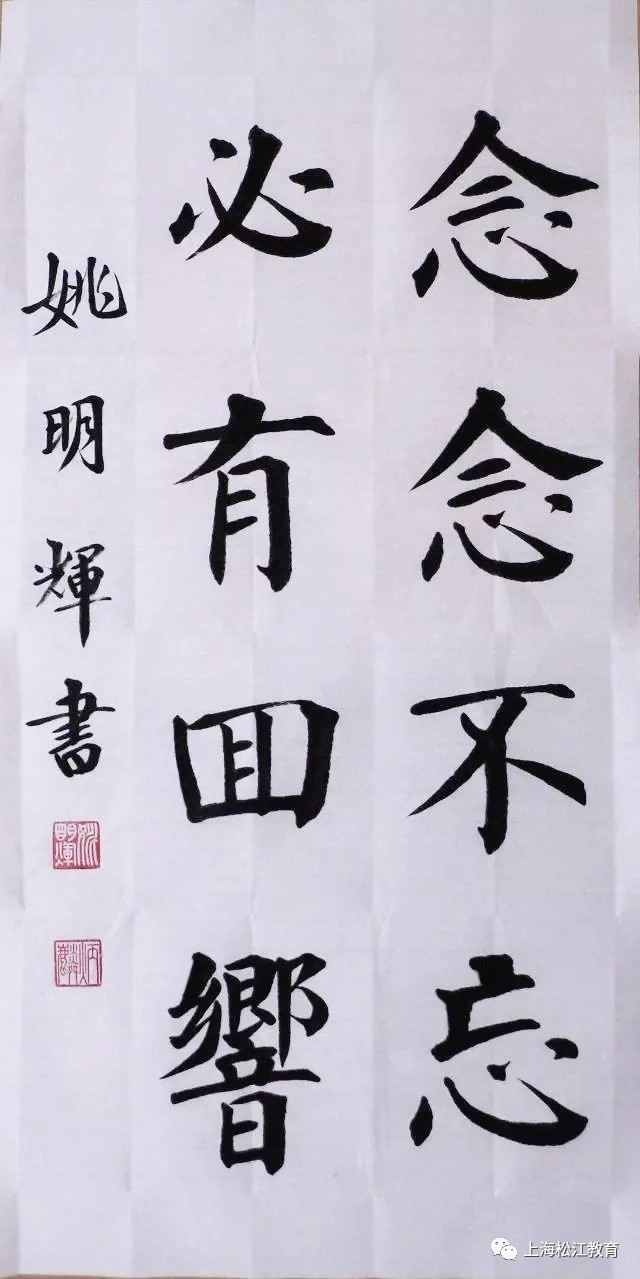 念念不忘
必有囬響
姚明輝書
上海松江教育